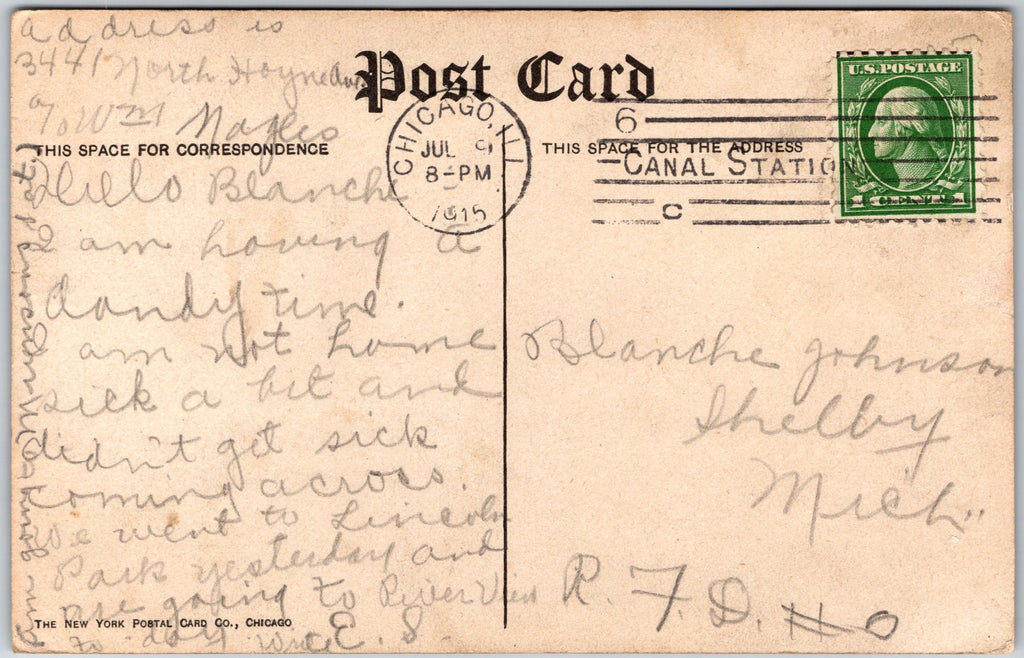 address is
3441 North Hoyne Ave.
% Wm Nagles
Post Card
THIS SPACE FOR CORRESPONDENCE
THIS SPACE FOR THE ADDRESS
CHICAGO, ILL
JUL 9
8-PM
1915
6
CANAL STATION
C
U.S. POSTAGE
Hello Blanche
I am having a
dandy time.
I am not home
sick a bit and
didn't get sick
coming across.
We went to Lincoln
Park yesterday and
are going to River View
to day Write E. S.
Blanche Johnson
Shelby
Mich.
R. F. D. #0
THE NEW YORK POSTAL CARD CO., CHICAGO